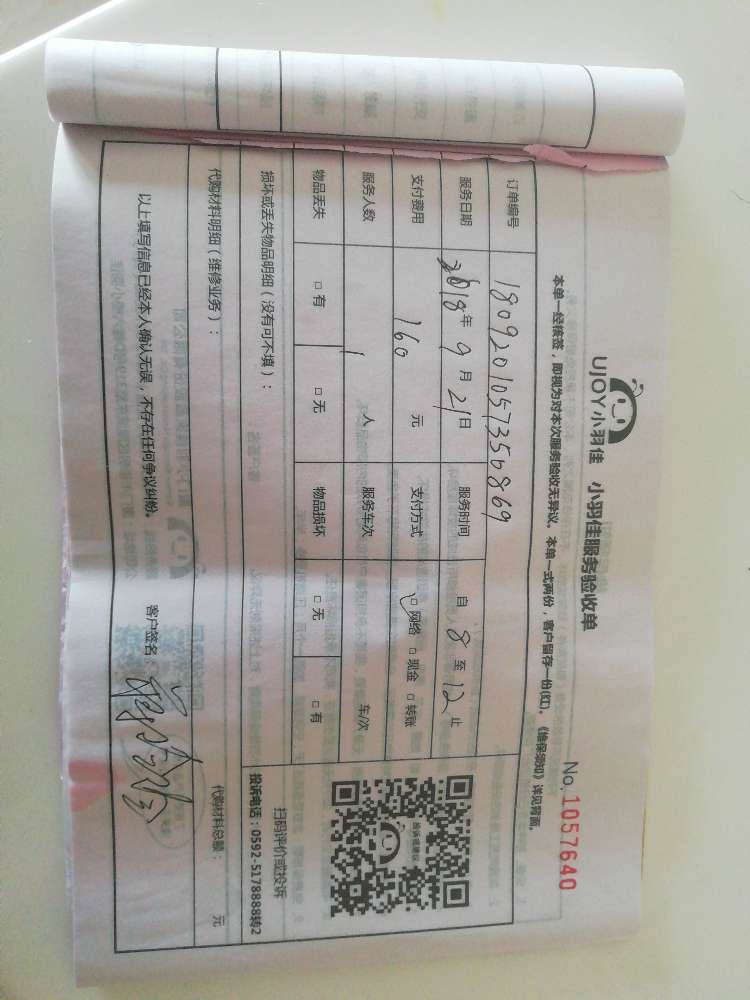 UJOY小羽佳 小羽佳服务验收单
No. 1057640
本单一经核签，即视为对本次服务验收无异议。本单一式两份，客户留存一份(红)。《维保须知》详见背面。
订单编号 180920105735b869
服务日期 2018年9月21日 服务时间 自 8 至 12 止
支付费用 160 元 支付方式 □网络 □现金 □转账
服务人数 1 人 服务车次 车/次
物品丢失 □有 □无 物品损坏 □无 □有
损坏或丢失物品明细（没有可不填）：
扫码评价或投诉
投诉电话：0592-5178888转2
代购材料明细（维修业务）： 代购材料总额： 元
以上填写信息已经本人确认无误，不存在任何争议纠纷。 客户签名：